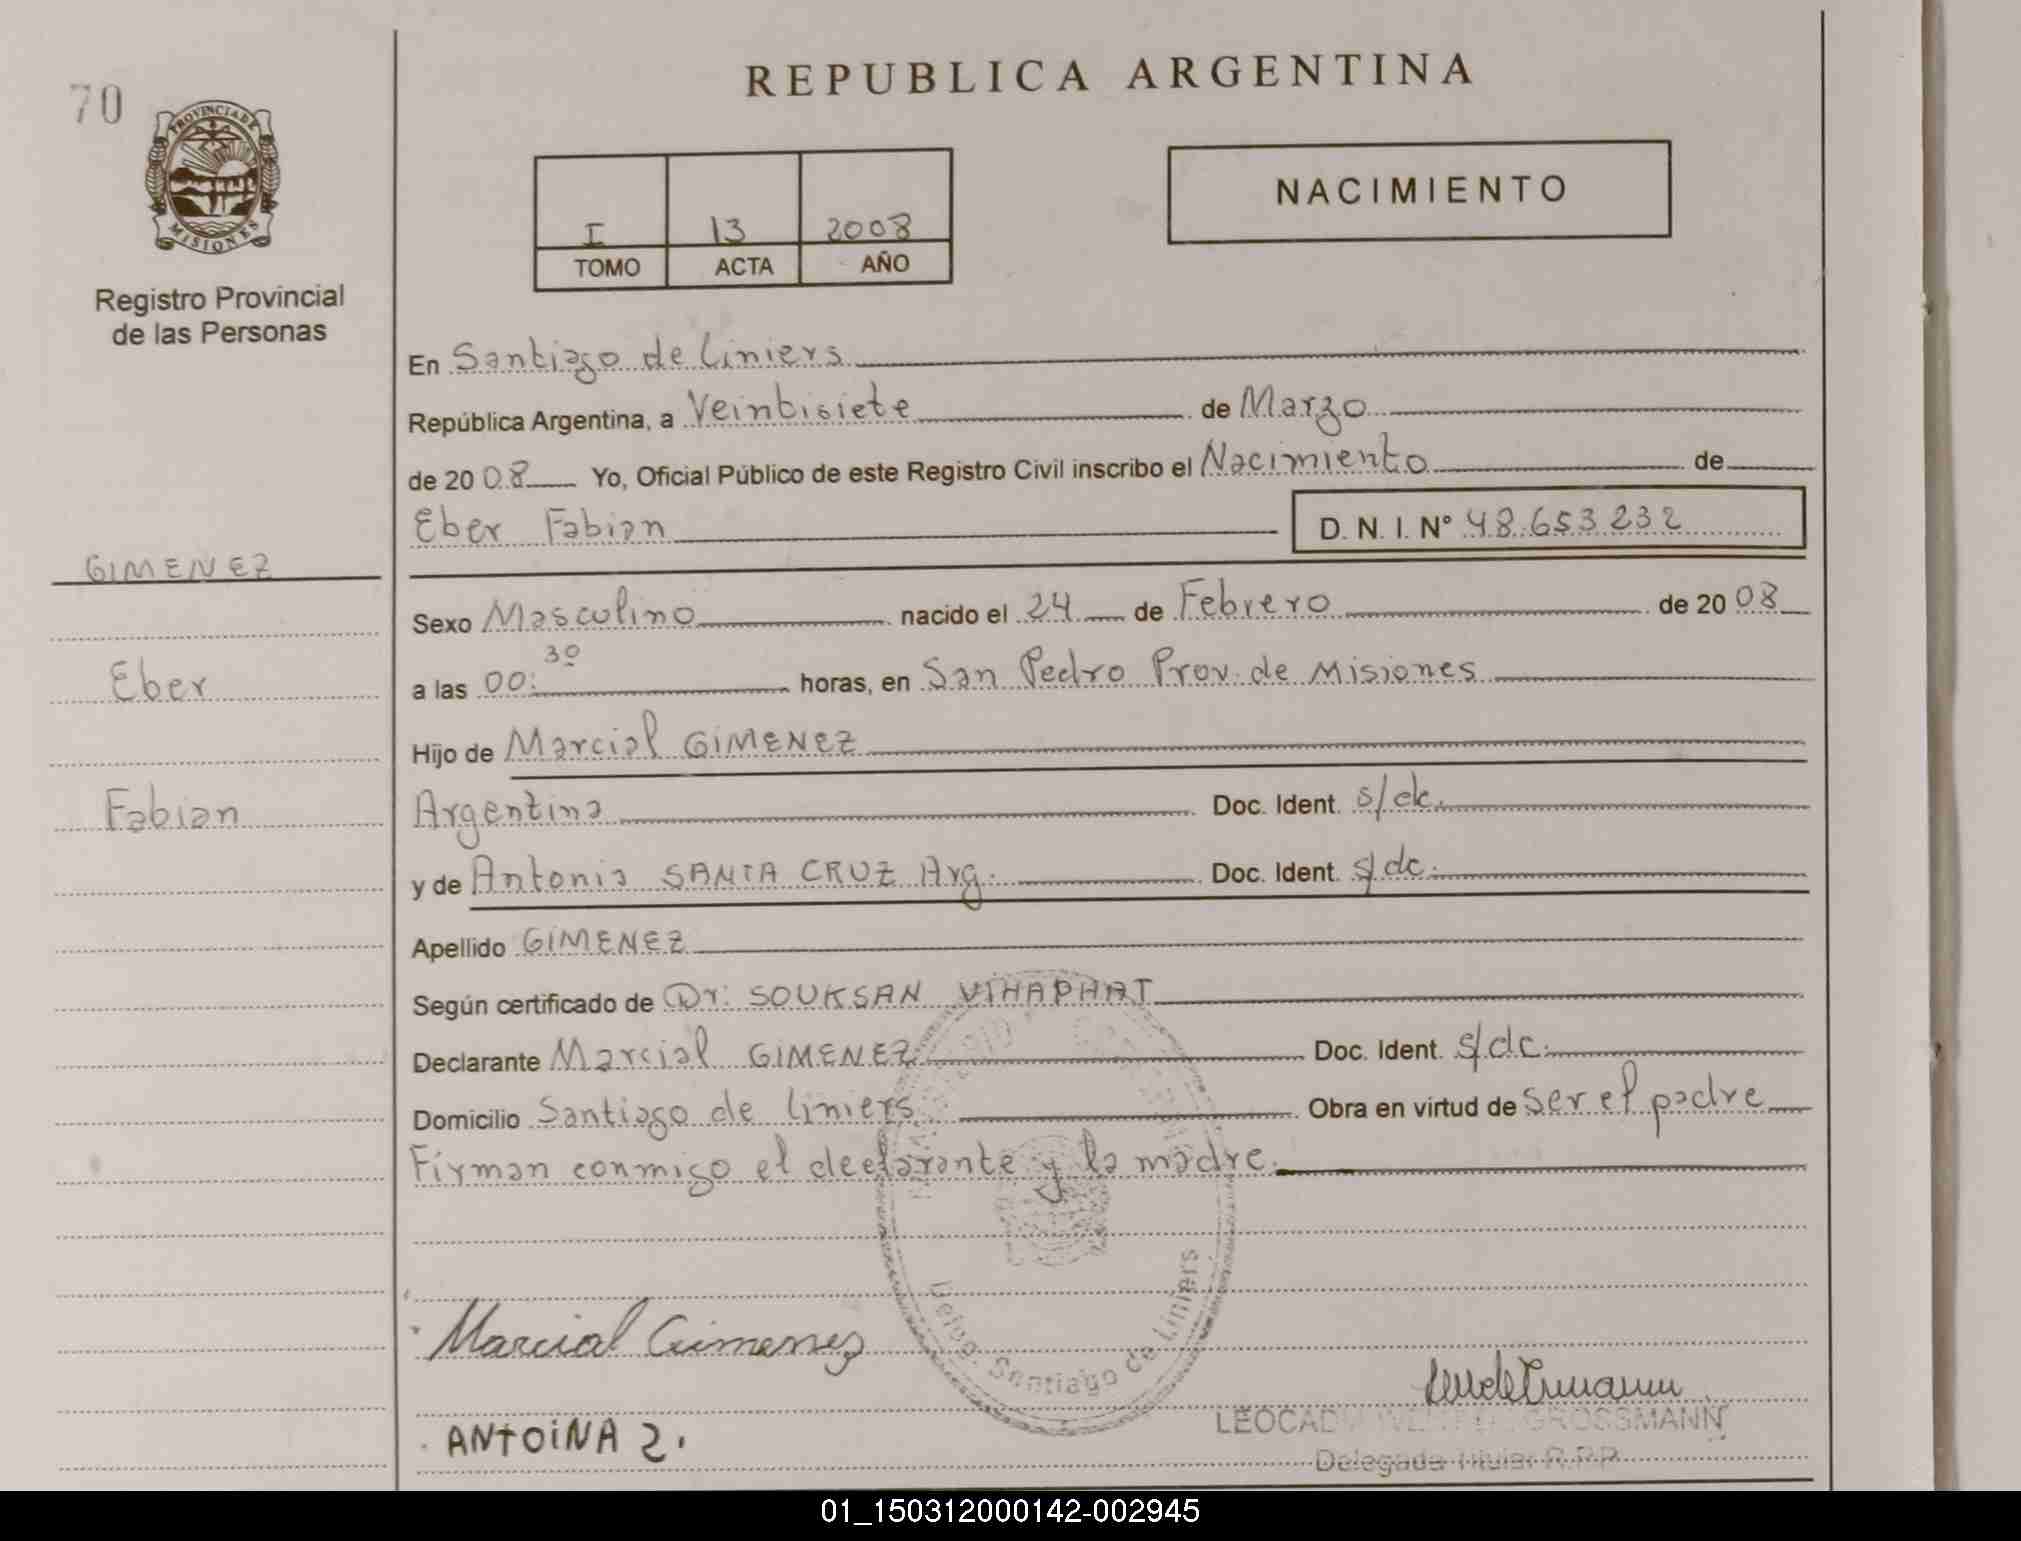 70
PROVINCIA DE
MISIONES
Registro Provincial
de las Personas
REPUBLICA ARGENTINA
I 13 2008
TOMO ACTA AÑO
NACIMIENTO
En Santiago de Liniers
República Argentina, a Veintisiete de Marzo
de 2008 Yo, Oficial Público de este Registro Civil inscribo el Nacimiento de
Eber Fabian D. N. I. N° 48.653.232
GIMENEZ
Sexo Masculino nacido el 24 de Febrero de 2008
a las 00:30 horas, en San Pedro Prov. de Misiones
Eber
Hijo de Marcial GIMENEZ
Argentina Doc. Ident. s/dc.
Fabian
y de Antonia SANTA CRUZ Arg. Doc. Ident. s/dc.
Apellido GIMENEZ
Según certificado de Dr. SOUKSAN VIHAPHAT
Declarante Marcial GIMENEZ Doc. Ident. s/dc.
Domicilio Santiago de Liniers Obra en virtud de ser el padre
Firman conmigo el declarante y la madre.
Santiago de Liniers
Marcial Gimenez
ANTOiNA 2.
GROSSMANN
Delegada Titular R.P.P.
01_150312000142-002945